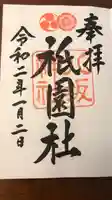 奉拝
祇園社
令和二年一月二日